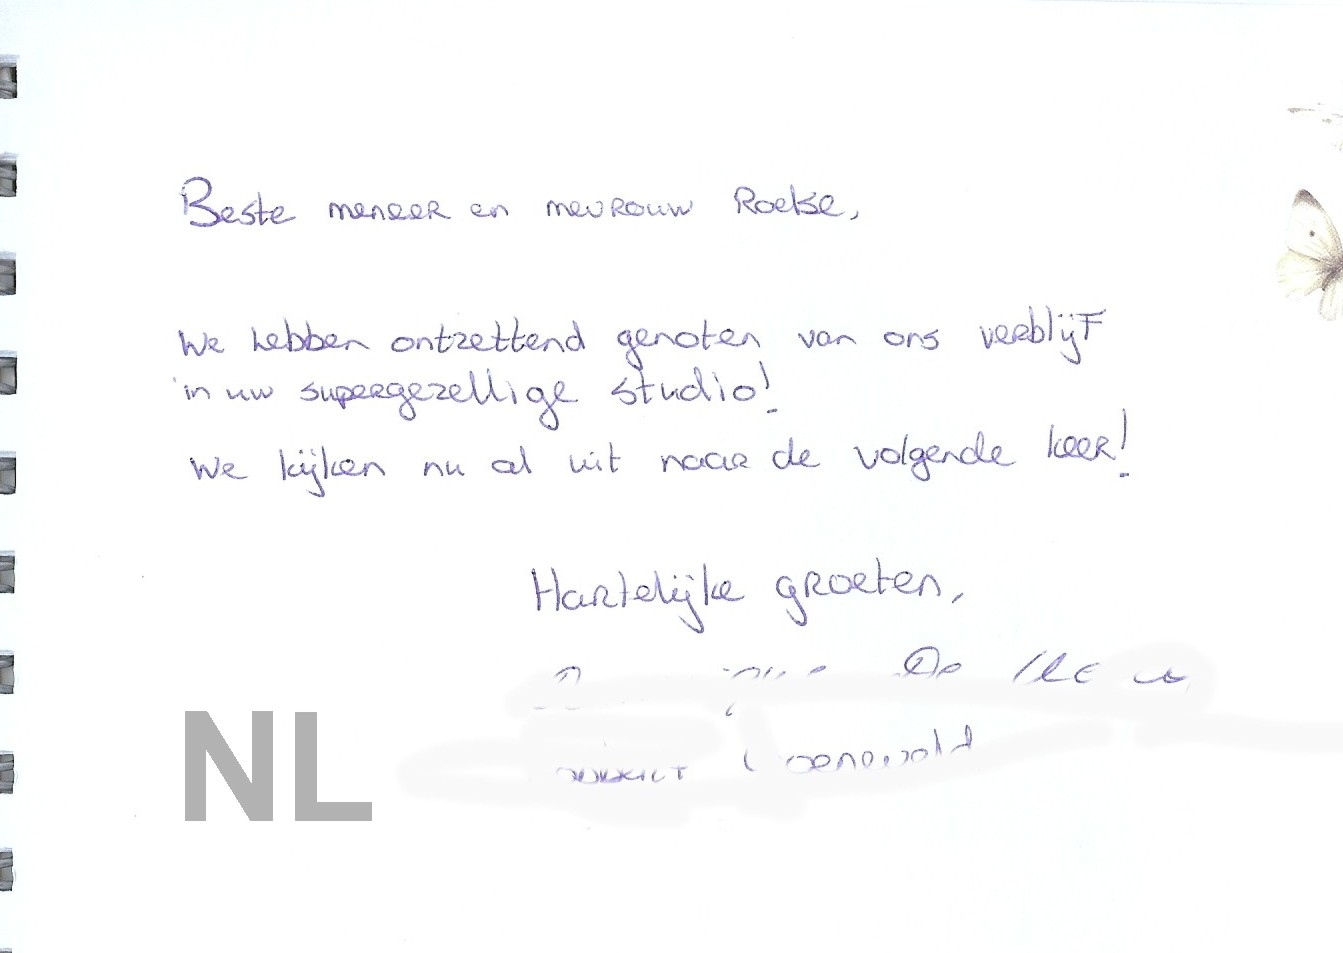 Beste meneer en mevrouw Roelse,
We hebben ontzettend genoten van ons verblijf
in uw supergezellige studio!
We kijken nu al uit naar de volgende keer!
Hartelijke groeten,
NL